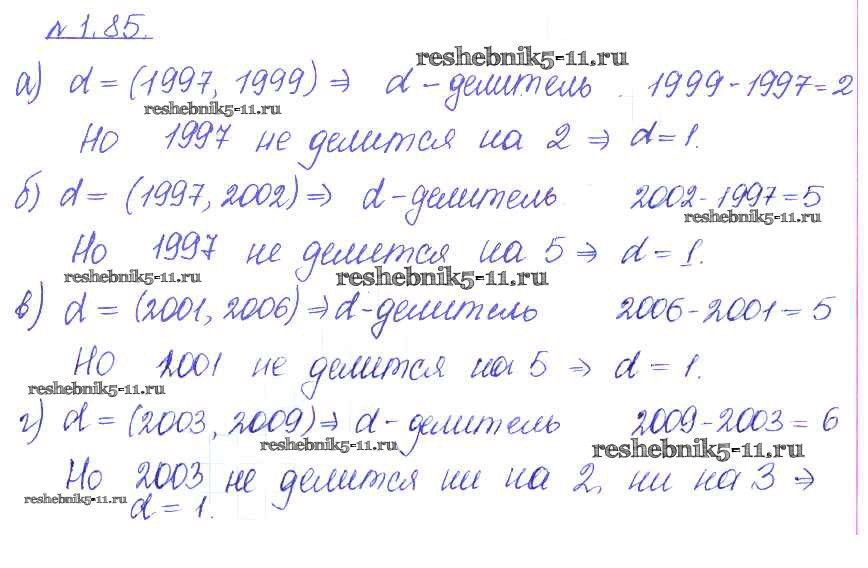 № 1.85.
reshebnik5-11.ru
а) d = (1997, 1999) ⇒ d - делитель 1999 - 1997 = 2
reshebnik5-11.ru
Но 1997 не делится на 2 ⇒ d = 1.
б) d = (1997, 2002) ⇒ d - делитель 2002 - 1997 = 5
reshebnik5-11.ru
Но 1997 не делится на 5 ⇒ d = 1.
reshebnik5-11.ru reshebnik5-11.ru
в) d = (2001, 2006) ⇒ d - делитель 2006 - 2001 = 5
Но 2001 не делится на 5 ⇒ d = 1.
reshebnik5-11.ru
г) d = (2003, 2009) ⇒ d - делитель 2009 - 2003 = 6
reshebnik5-11.ru reshebnik5-11.ru
Но 2003 не делится ни на 2, ни на 3 ⇒
reshebnik5-11.ru
d = 1.